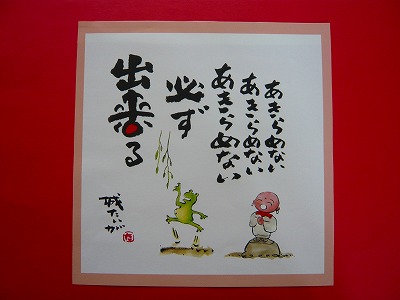 あきらめない
あきらめない
あきらめない
必ず
出来る
城たいが